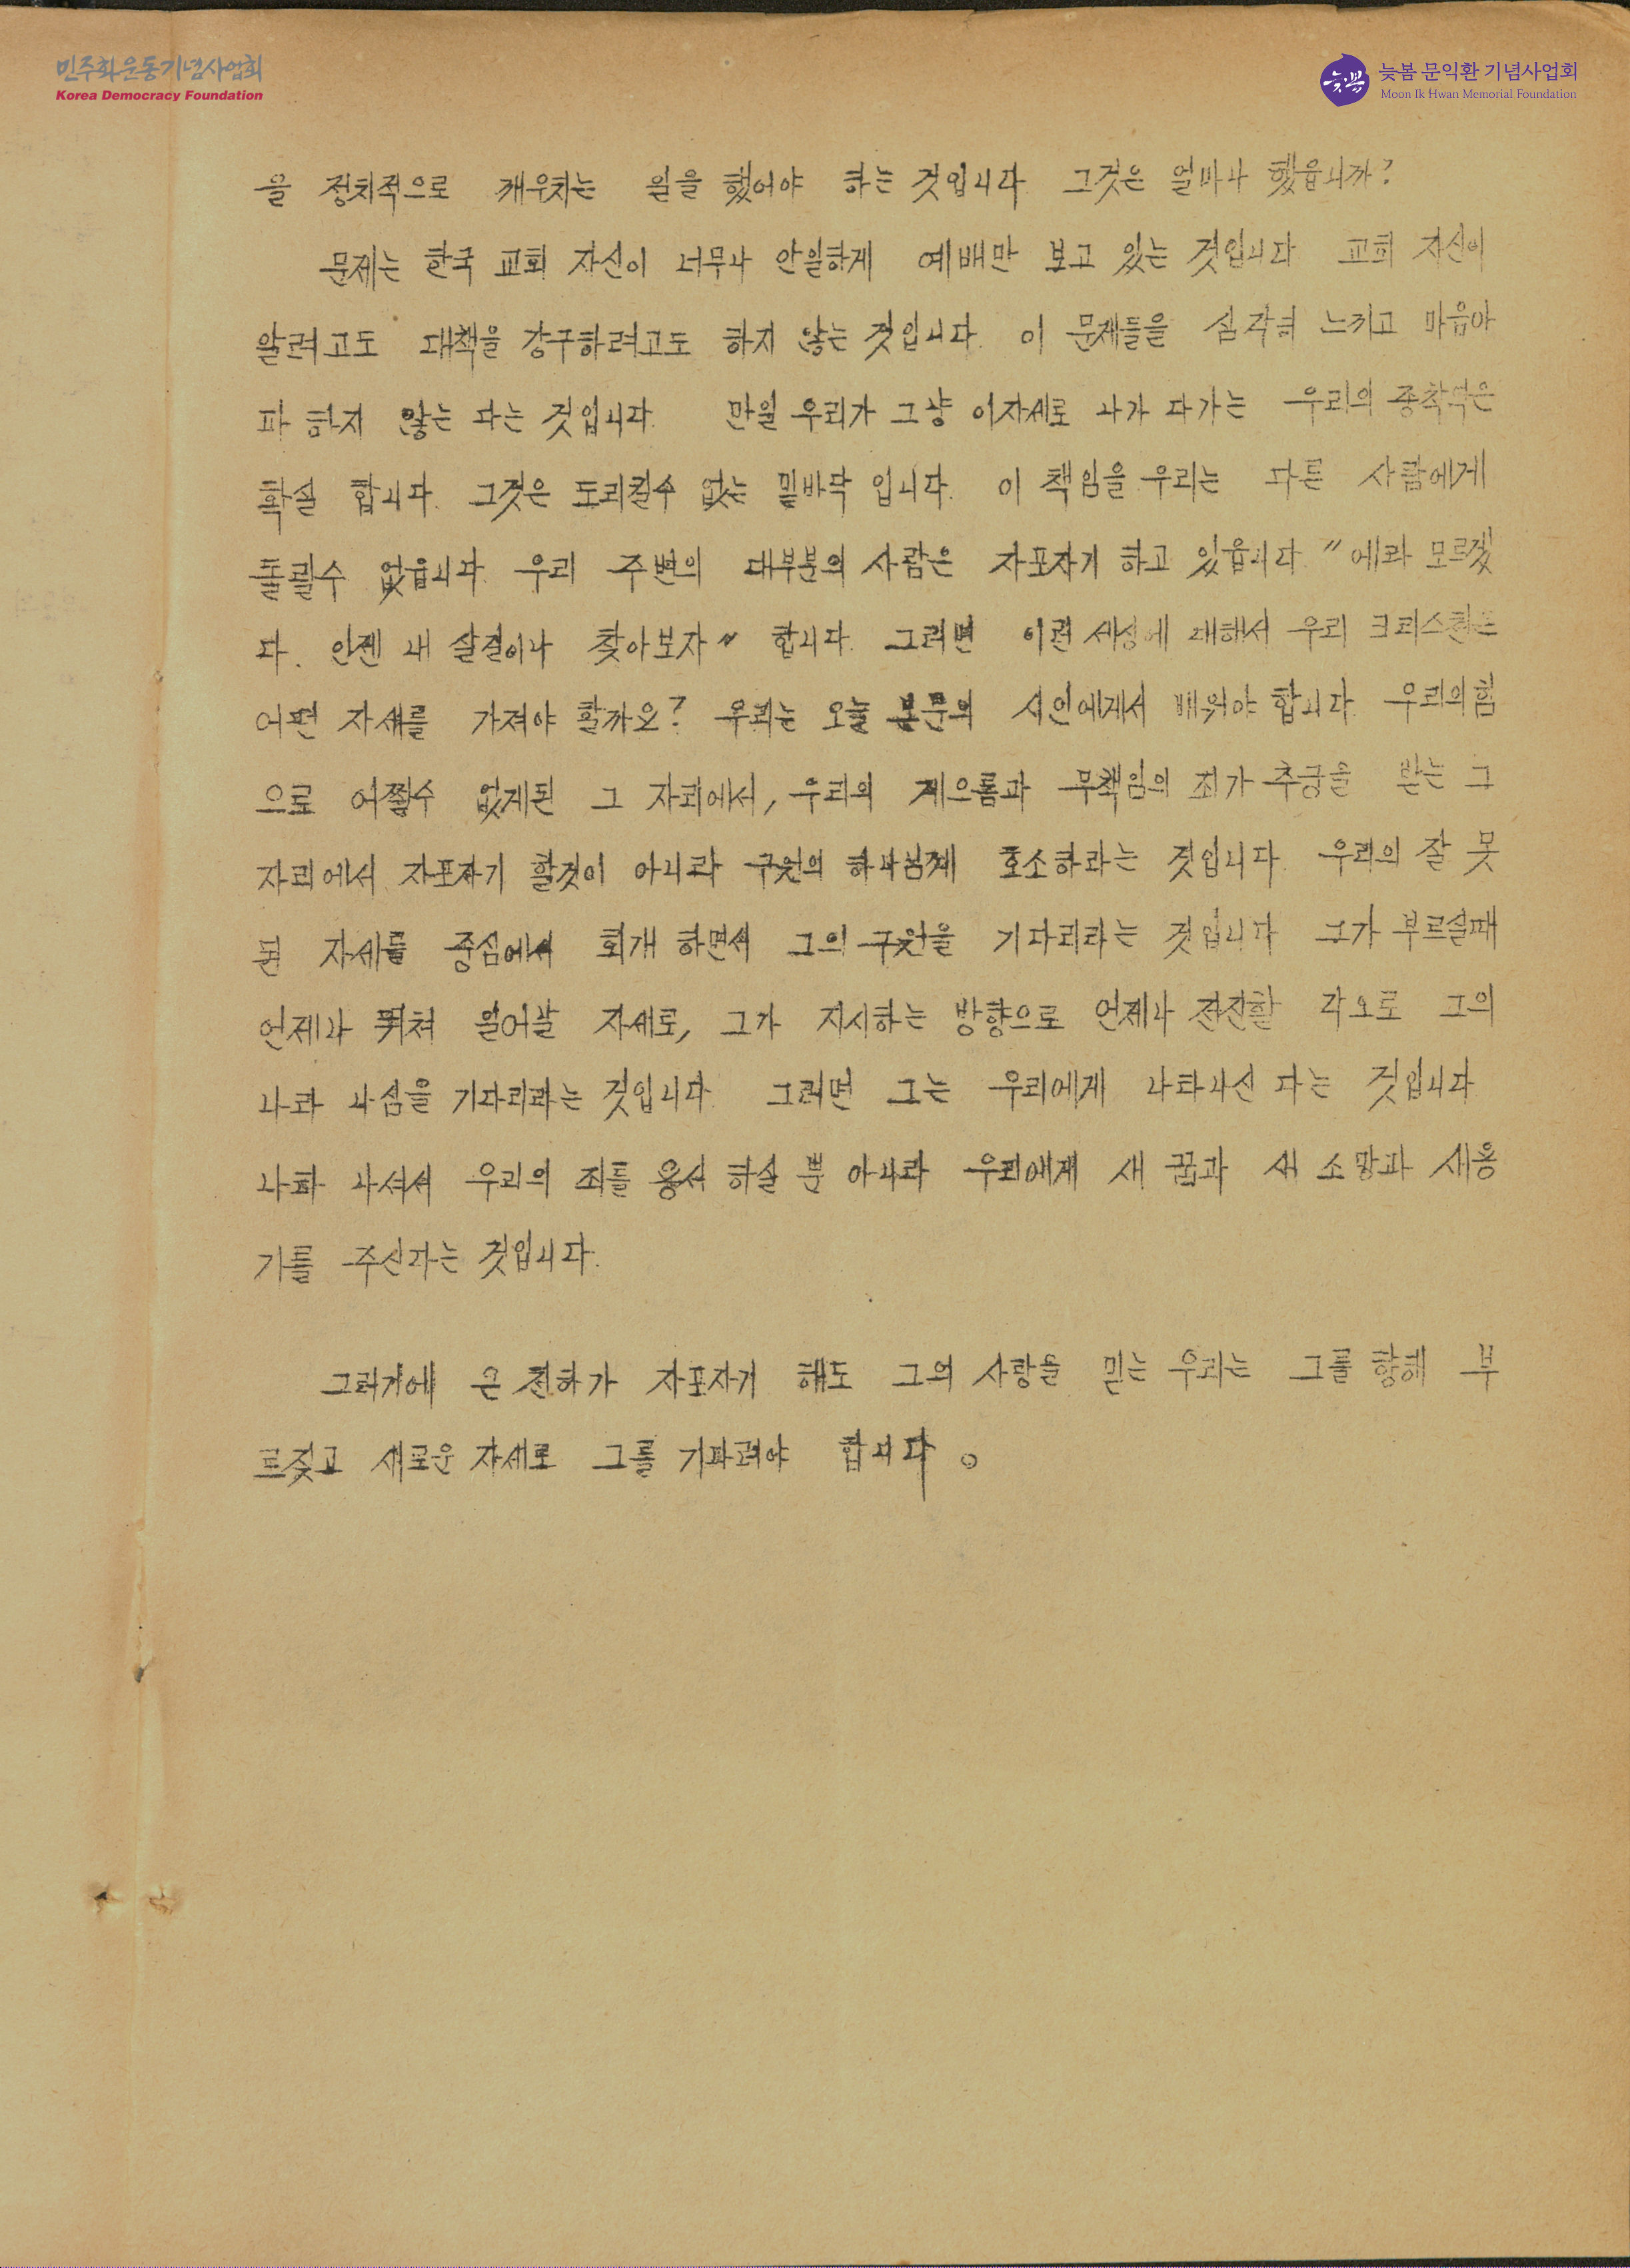 민주화운동기념사업회
Korea Democracy Foundation
늦봄 문익환 기념사업회
Moon Ik Hwan Memorial Foundation
늦봄
을 정치적으로 깨우치는 일을 했어야 하는 것입니다. 그것은 얼마나 했읍니까?
문제는 한국 교회 자신이 너무나 안일하게 예배만 보고 있는 것입니다 교회 자신이
알려고도 대책을 강구하려고도 하지 않는 것입니다. 이 문제들을 심각히 느끼고 마음아
파 하지 않는 다는 것입니다. 만일 우리가 그냥 이자세로 나가 다가는 우리의 종착역은
확실 합니다. 그것은 도리킬수 없는 밑바닥 입니다. 이 책임을 우리는 다른 사람에게
돌릴수 없읍니다. 우리 주변의 대부분의 사람은 자포자기 하고 있읍니다. "에라 모르겠
다. 인젠 내 살길이나 찾아보자" 합니다. 그러면 이런 세상에 대해서 우리 크리스찬은
어떤 자세를 가져야 할까요? 우리는 오늘 본문의 시인에게서 배워야 합니다. 우리의힘
으로 어쩔수 없게된 그 자리에서, 우리의 게으름과 무책임의 죄가 추궁을 받는 그
자리에서 자포자기 할것이 아니라 구원의 하나님께 호소하라는 것입니다. 우리의 잘 못
된 자세를 중심에서 회개 하면서 그의 구원을 기다리라는 것입니다 그가 부르실때
언제나 뛰쳐 일어날 자세로, 그가 지시하는 방향으로 언제나 전진할 각오로 그의
나타 나심을 기다리라는 것입니다. 그러면 그는 우리에게 나타나신 다는 것입니다
나타 나셔서 우리의 죄를 용서 하실 뿐 아니라 우리에게 새 꿈과 새 소망과 새용
기를 주신다는 것입니다.
그러기에 온 천하가 자포자기 해도 그의 사랑을 믿는 우리는 그를 향해 부
르짖고 새로운 자세로 그를 기다려야 합니다。